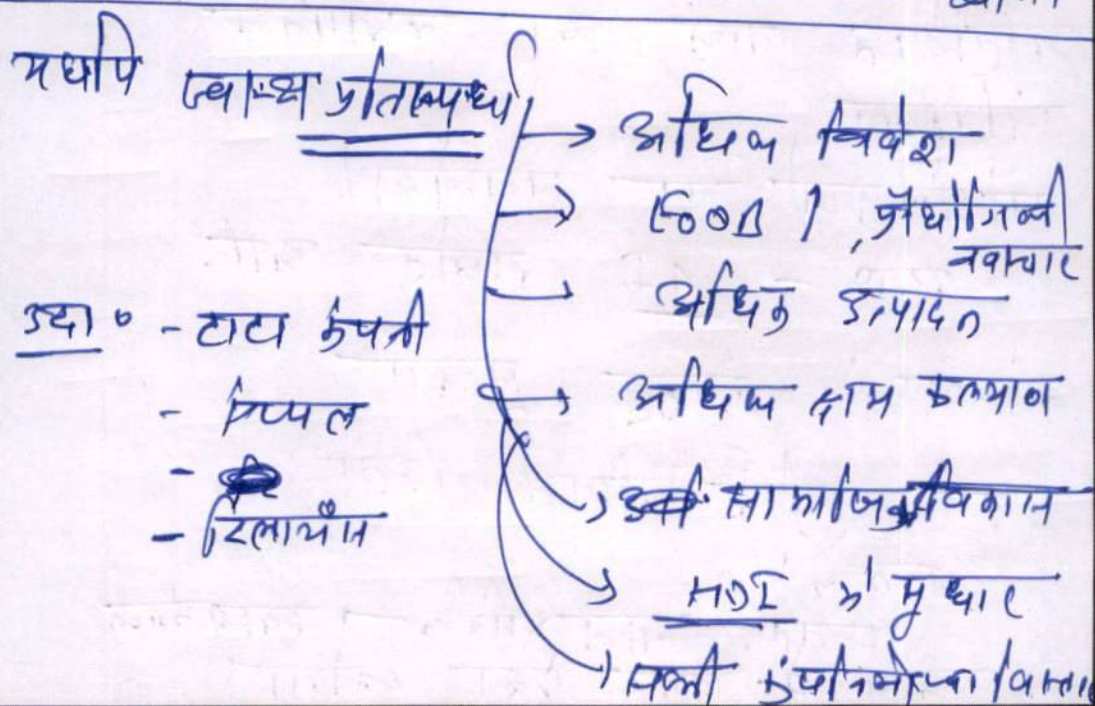 यद्यपि स्वास्थ्य प्रतिस्पर्धा
→ अधिक निवेश
→ , प्रौद्योगिकी
नवाचार
→ अधिक उत्पादन
→ अधिक श्रम कल्याण
→ सामाजिक विकास
→ HDI में सुधार
→ सभी कंपनियों का विकास
उदा० - टाटा कंपनी
- एप्पल
- रिलायंस